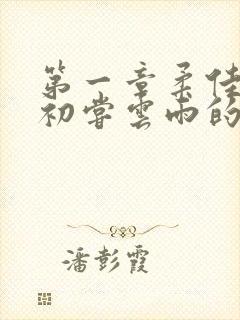 第一章柔佳
初尝雲雨的
潘彭霞